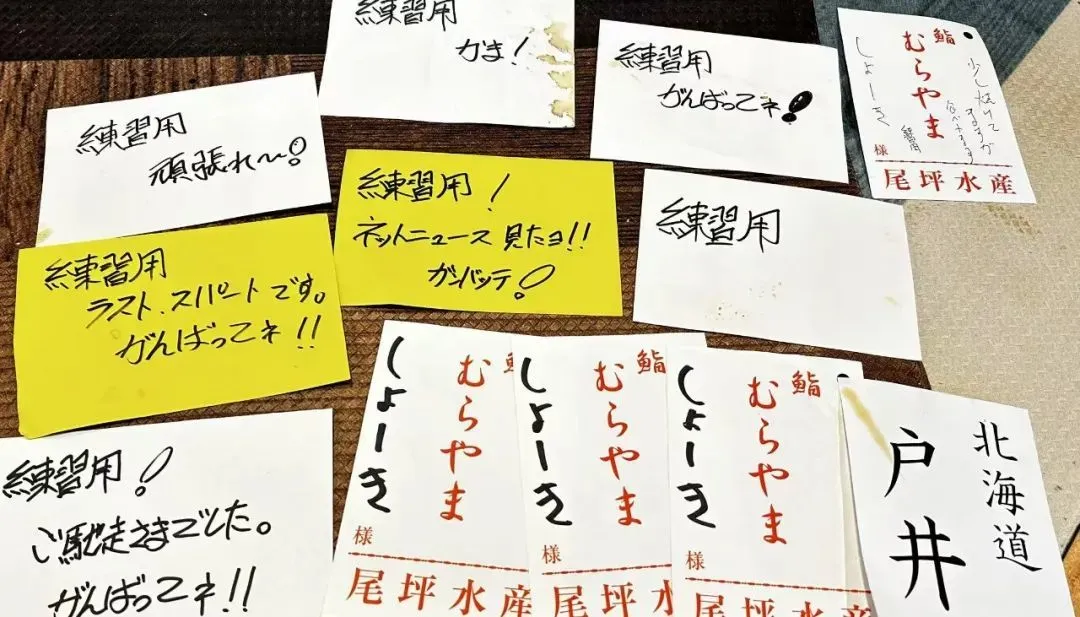 練習用
かま!
練習用
がんばってネ!
鮨
むらやま
しょーき
様
尾坪水産
少し焼けて
ますが
練習用
頑張れ〜!
練習用!
ネットニュース見たヨ!!
ガンバッテ!
練習用
練習用
ラスト、スパートです。
がんばってネ!!
練習用!
ご馳走さまでした。
がんばってネ!!
鮨
むらやま
しょーき
様
尾坪水産
鮨
むらやま
しょーき
様
尾坪水
鮨
むらやま
しょーき
様
尾坪水産
北海道
戸井